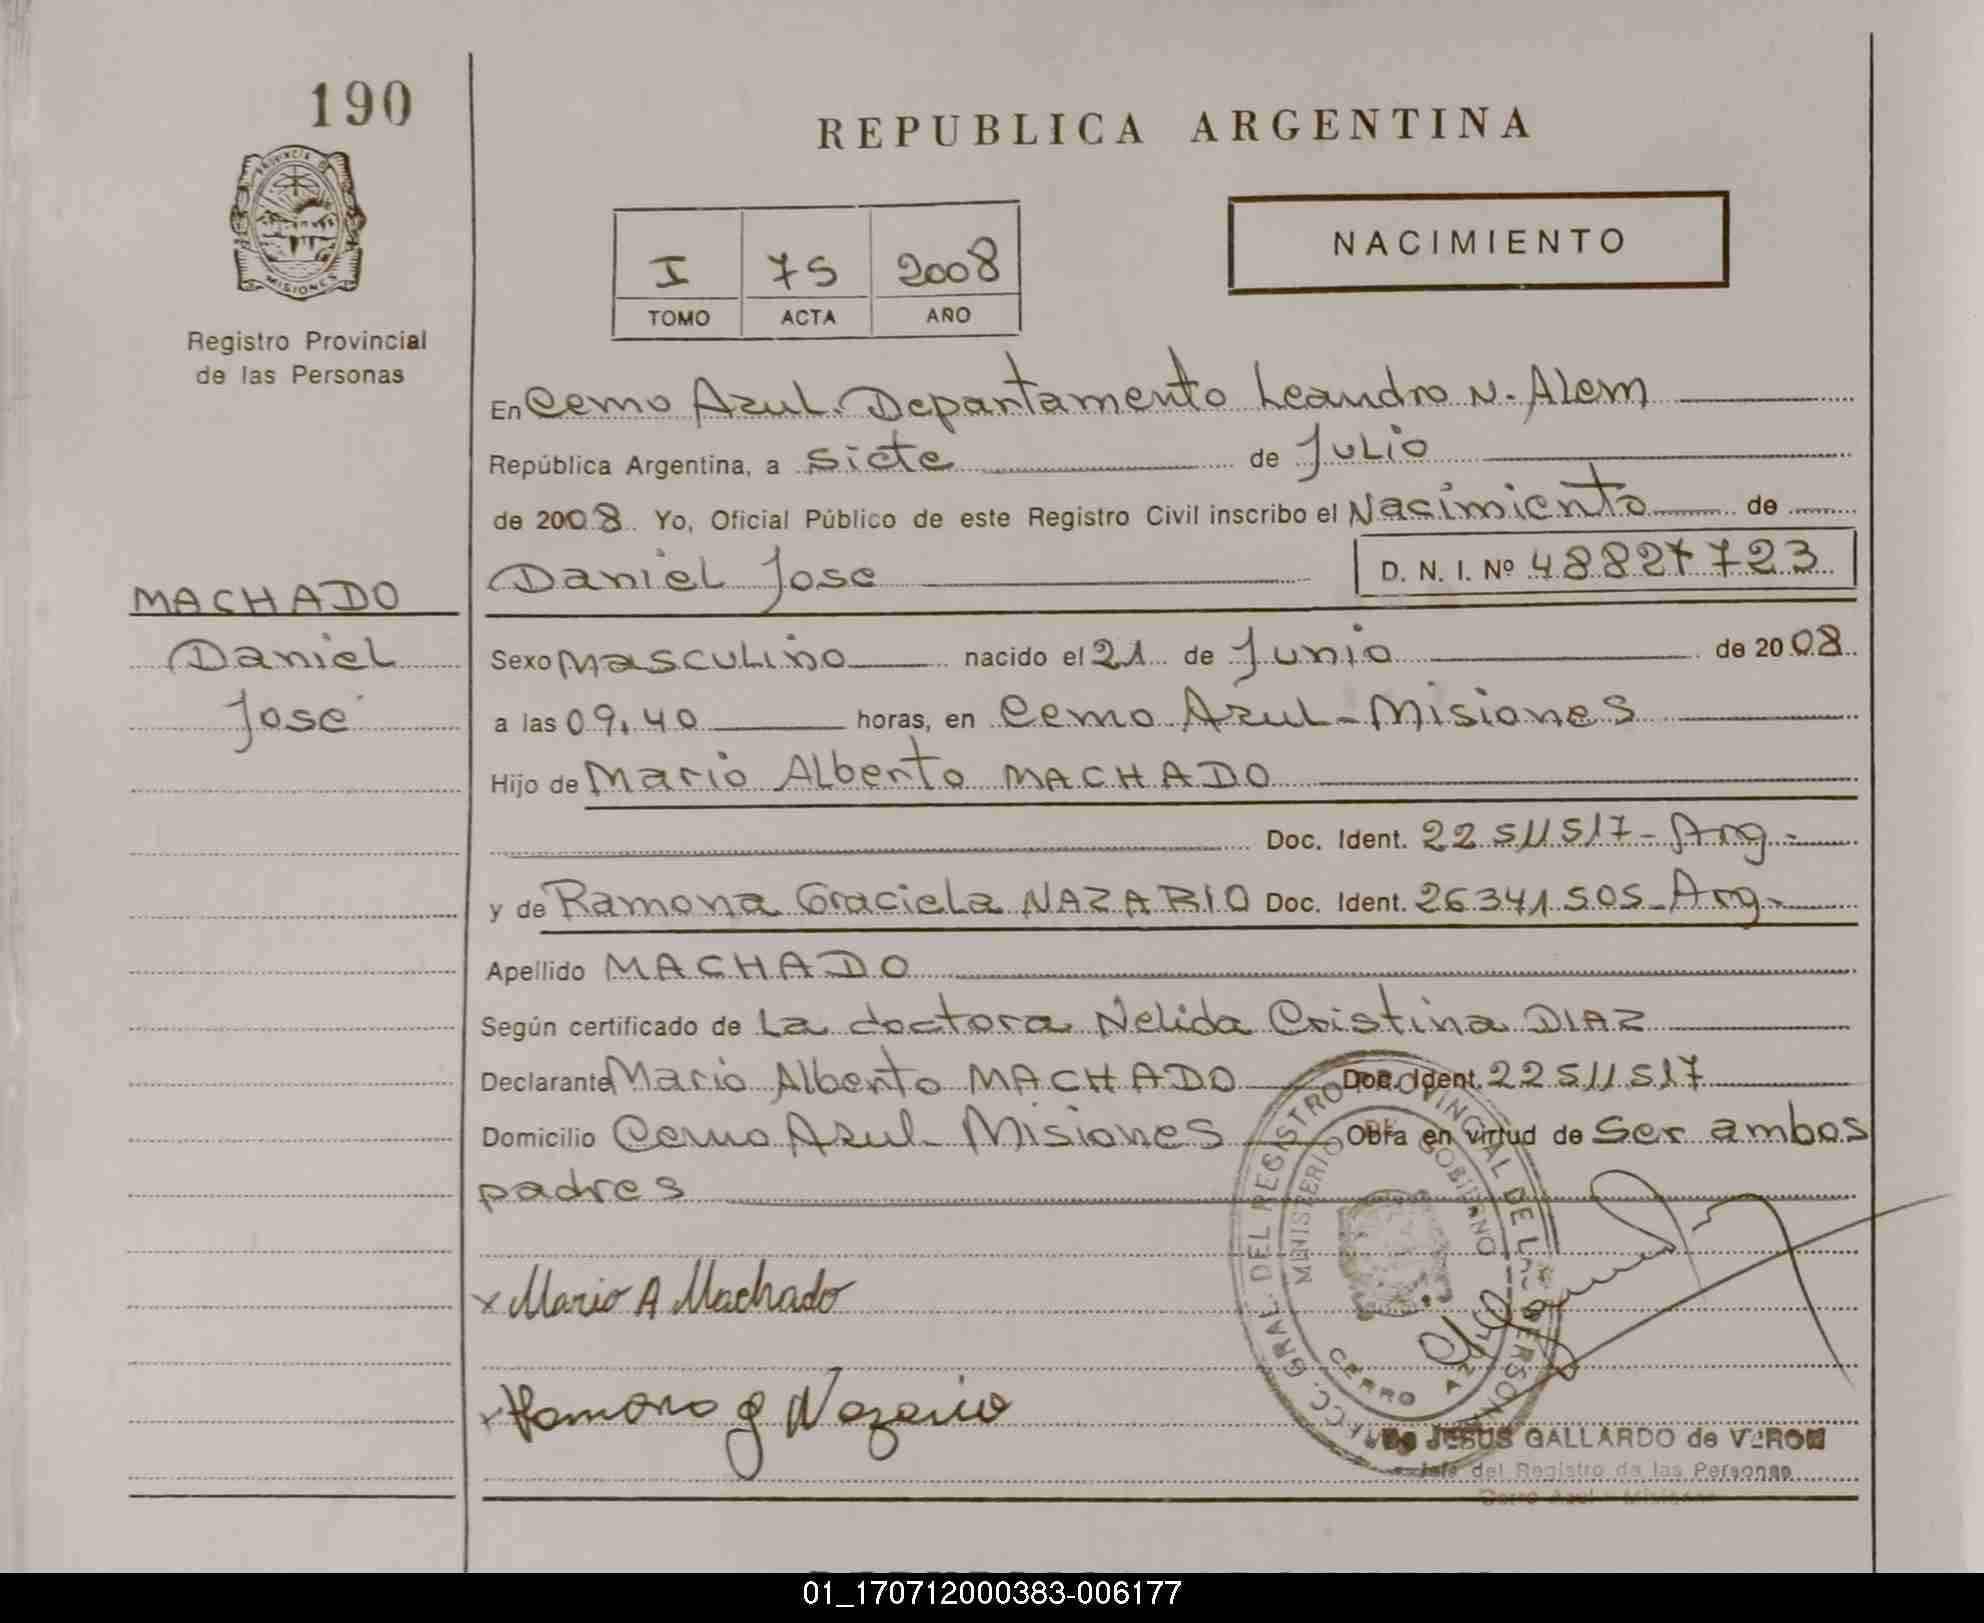 190
REPUBLICA ARGENTINA
PROVINCIA DE
MISIONES
Registro Provincial
de las Personas
I 75 2008
TOMO ACTA AÑO
NACIMIENTO
En Cerro Azul. Departamento Leandro N. Alem
República Argentina, a siete de Julio
de 2008. Yo, Oficial Público de este Registro Civil inscribo el Nacimiento de
Daniel Jose D. N. I. Nº 48827723
MACHADO
Daniel
Jose
Sexo Masculino nacido el 21 de Junio de 2008
a las 09.40 horas, en Cerro Azul - Misiones
Hijo de Mario Alberto MACHADO
Doc. Ident. 22511517 - Arg.-
y de Ramona Graciela NAZARIO Doc. Ident. 26341505 - Arg.-
Apellido MACHADO
Según certificado de La doctora Nelida Cristina DIAZ
Declarante Mario Alberto MACHADO Doc. Ident. 22511517
Domicilio Cerro Azul - Misiones Obra en virtud de ser ambos
padres
x Mario A Machado
x Ramona G Nazario
GRAL. DEL REGISTRO PROVINCIAL DE LAS PERSONAS
MINISTERIO DE GOBIERNO
CERRO AZUL
JESUS GALLARDO de VERON
Jefe del Registro de las Personas
Cerro Azul - Misiones
01_170712000383-006177